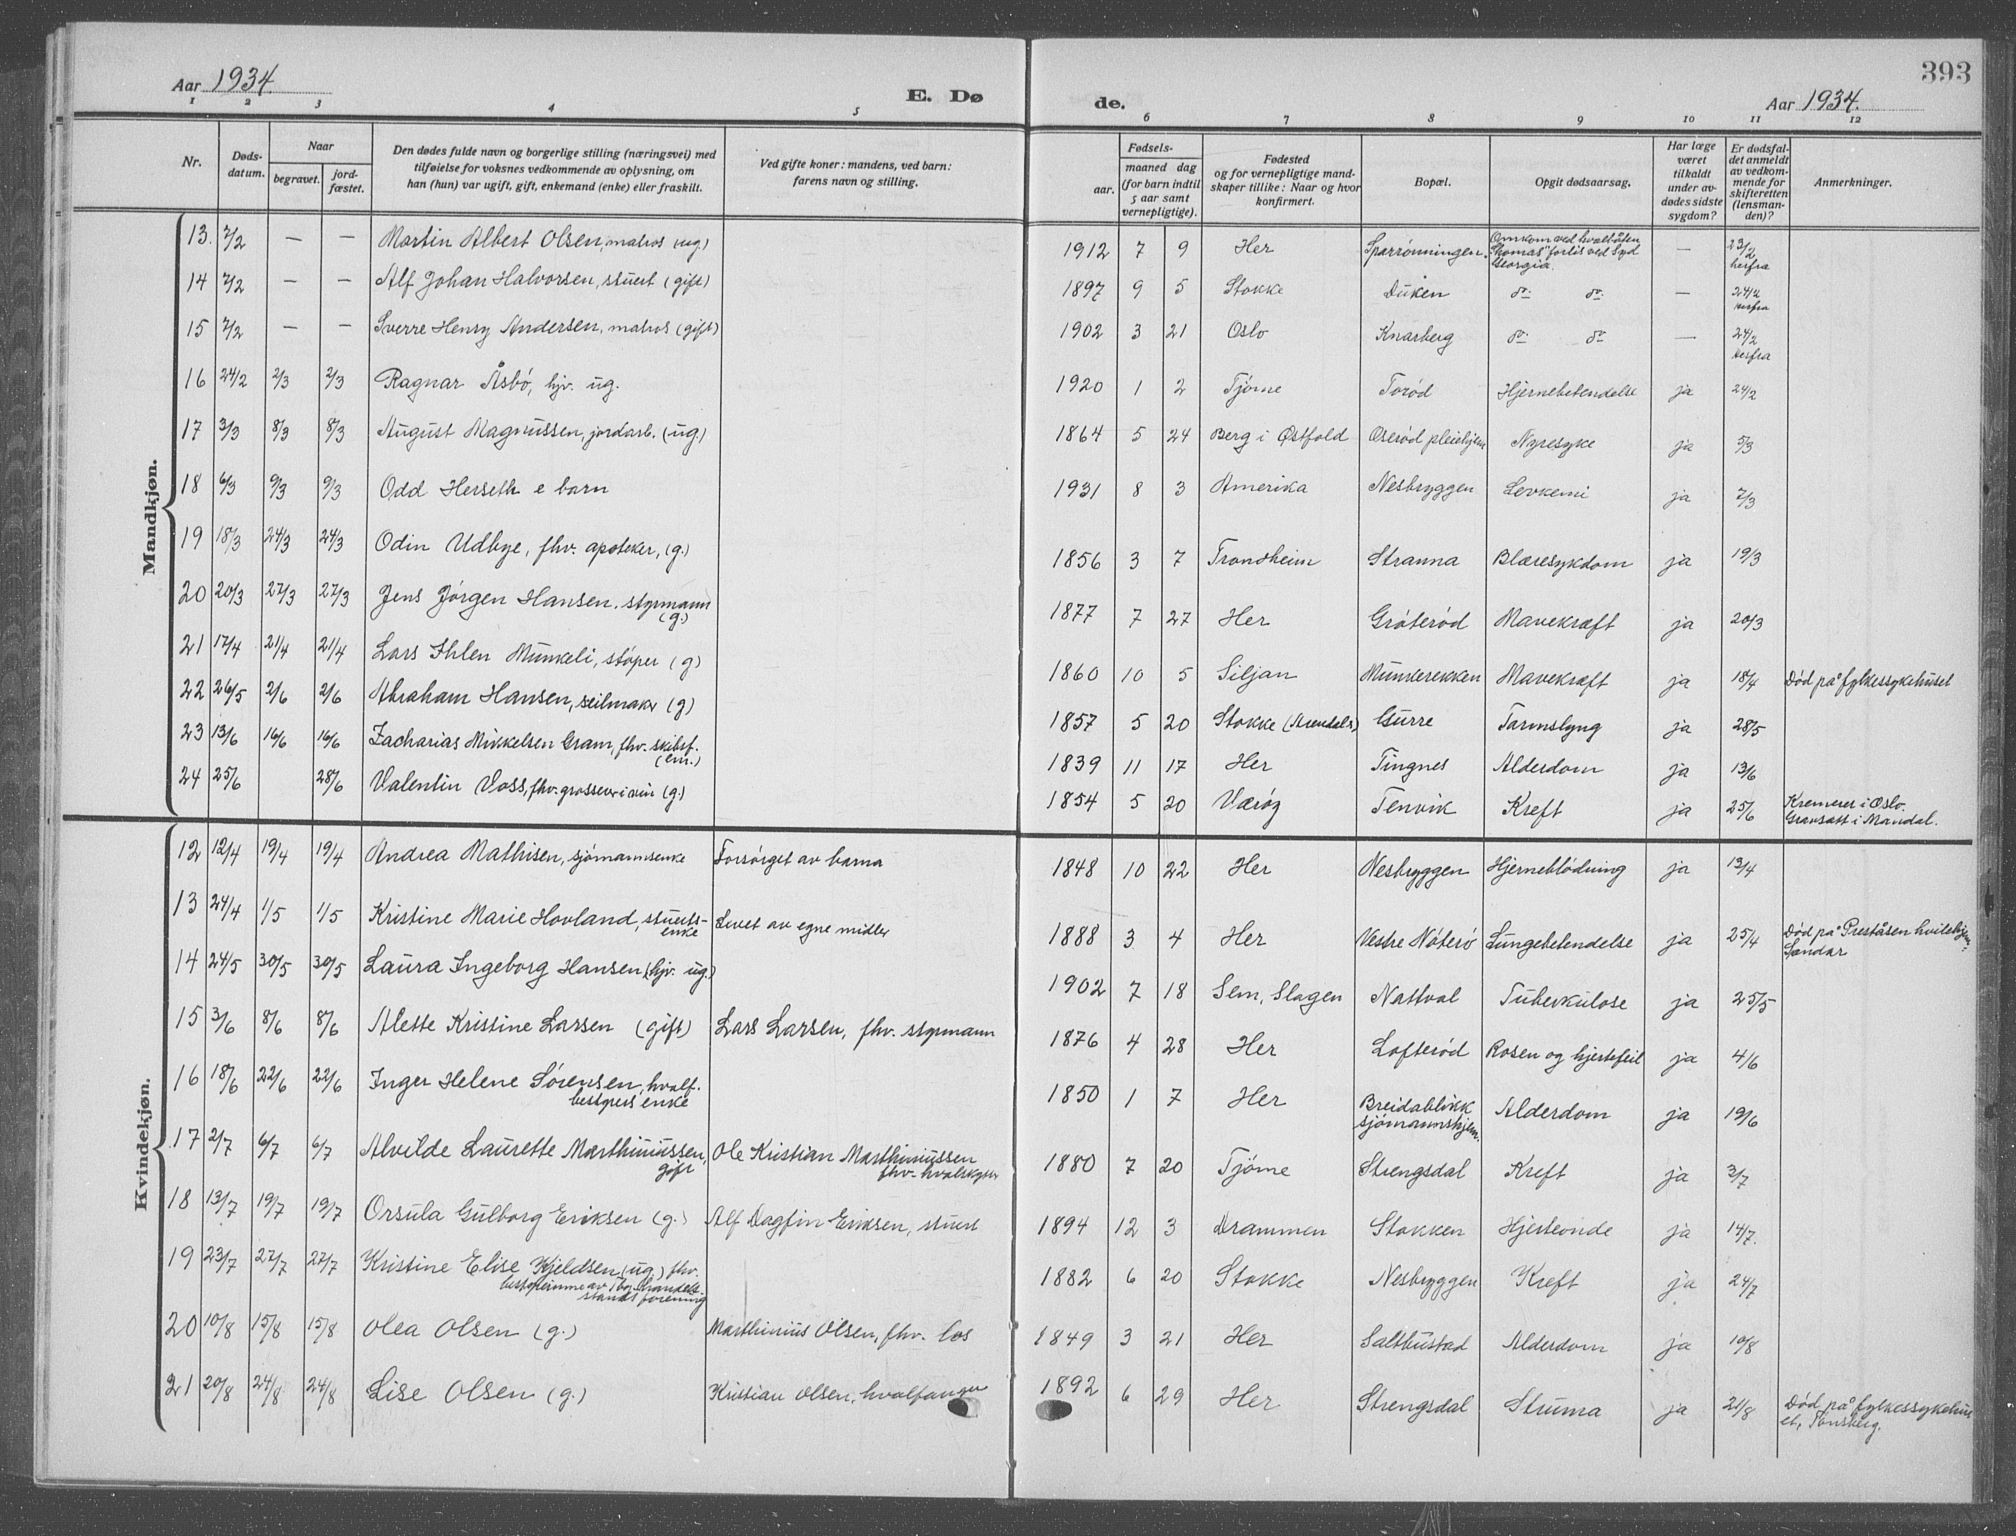 393
Aar 1934.
E. Dø
de.
Aar 1934.
1 2 3 4 5 6 7 8 9 10 11 12
Nr.
Døds-
datum.
Naar
begravet.
jord-
fæstet.
Den dødes fulde navn og borgerlige stilling (næringsvei) med
tilføielse for voksnes vedkommende av oplysning, om
han (hun) var ugift, gift, enkemand (enke) eller fraskilt.
Ved gifte koner: mandens, ved barn:
farens navn og stilling.
Fødsels-
aar.
maaned dag
(for barn indtil
5 aar samt
vernepligtige).
Fødested
og for vernepligtige mand-
skaper tillike: Naar og hvor
konfirmert.
Bopæl.
Opgit dødsaarsag.
Har læge
været
tilkaldt
under av-
dødes sidste
sygdom?
Er dødsfal-
det anmeldt
av vedkom-
mende for
skifteretten
(lensman-
den)?
Anmerkninger.
Mandkjøn.
13. 7/2 — — Martin Albert Olsen, matros (ug) 1912 7 9 Her Sparrønningen. Omkom ved hvalbåten "Thomas" forlis ved Syd Georgia. — 23/2 herfra
14 7/2 — — Alf Johan Halvorsen, stuert (gift) 1897 9 5 Stokke Duken do do — 24/2 herfra
15 7/2 — — Sverre Henry Andersen, matros (gift) 1902 3 21 Oslo Knarberg do do — 24/2 herfra
16 24/2 2/3 2/3 Ragnar Åsbø, hjv. ug. 1920 1 2 Tjøme Torød Hjernebetendelse ja 24/2
17 3/3 8/3 8/3 August Magnussen, jordarb. (ug.) 1864 5 24 Berg i Østfold Oserød pleiehjem Nyresyke ja 5/3
18 6/3 9/3 9/3 Odd Herseth e barn 1931 8 3 Amerika Nesbryggen Levkemi ja 7/3
19 18/3 24/3 24/3 Odin Udbye, fhv. apoteker, (g.) 1856 3 7 Trondheim Stranna Blæresykdom ja 19/3
20 20/3 27/3 27/3 Jens Jørgen Hansen, styrmann (g.) 1877 7 27 Her Grøterød Mavekræft ja 20/3
21 17/4 21/4 21/4 Lars Ihlen Munkeli, støper (g) 1860 10 5 Siljan Munkerekken Mavekræft ja 18/4 Død på fylkessykehuset
22 26/5 2/6 2/6 Abraham Hansen, seilmaker (g) 1857 5 20 Stokke (Arendals) Gurre Tarmslyng ja 28/5
23 13/6 16/6 16/6 Zacharias Mikkelsen Gram, fhv. skibsf. (em.) 1839 11 17 Her Tingnes Alderdom ja 13/6
24 25/6 28/6 Valentin Voss, fhv. grosserer i vin (g.) 1854 5 20 Værøy Tenvik Kreft ja 25/6 Kremeres i Oslo. Gravsatt i Mandal.
Kvindekjøn.
12 12/4 19/4 19/4 Andrea Mathisen, sjømannsenke Forsørget av barna 1848 10 22 Her Nesbryggen Hjerneblødning ja 13/4
13 24/4 1/5 1/5 Kristine Marie Hovland, stuerts- enke Levet av egne midler 1888 3 4 Her Vestre Nøterø Lungebetendelse ja 25/4 Død på Preståsen hvilehjem, Sandar
14 24/5 30/5 30/5 Laura Ingeborg Hansen (hjv. ug.) 1902 7 18 Sem, Slagen Nattval Tuberkulose ja 25/5
15 3/6 8/6 8/6 Alette Kristine Larsen (gift) Lars Larsen, fhv. styrmann 1876 4 28 Her Lofterød Rosen og hjertefeil ja 4/6
16 18/6 22/6 22/6 Inger Helene Sørensen, hvalf. bestyrers enke 1850 1 7 Her Breidablikk sjømannshjem. Alderdom ja 19/6
17 2/7 6/7 6/7 Alvilde Laurette Marthiniussen, gift Ole Kristian Marthiniussen fhv. hvalskytter 1880 7 20 Tjøme Strengsdal Kreft ja 3/7
18 13/7 19/7 19/7 Orsula Gulborg Eriksen (g.) Alf Dagfin Eriksen, stuert 1894 12 3 Drammen Stokken Hjerteonde ja 14/7.
19 23/7 27/7 27/7 Kristine Elise Kjeldsen, (ug.) fhv. bestyrerinne av Tbg. handels- stands forening 1882 6 20 Stokke Nesbryggen Kreft ja 24/7
20 10/8 15/8 15/8 Olea Olsen (g.) Marthinius Olsen, fhv. los 1849 3 21 Her Salthustad Alderdom ja 10/8
21 20/8 24/8 24/8 Lise Olsen (g.) Kristian Olsen, hvalfanger 1892 6 29 Her Strengsdal Struma ja 21/8 Død på fylkessykehus et, Tønsberg.